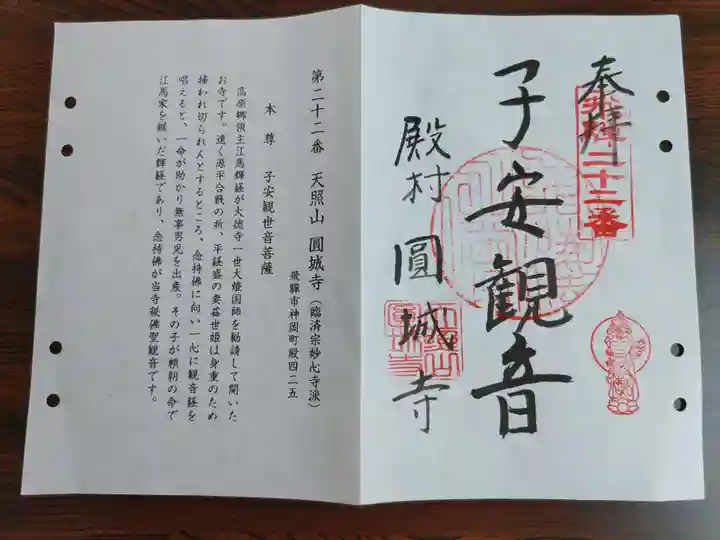 奉拝
飛騨二十二番
子安観音
殿村 圓城寺
第二十二番 天照山 圓城寺(臨済宗妙心寺派)
飛騨市神岡町殿四二五
本尊 子安観世音菩薩
高原郷領主江馬輝経が大徳寺一世大燈国師を勧請して開いた
お寺です。遠く源平合戦の折、平経盛の妻茲世姫は身重のため
捕われ切られんとするところ、念持佛に向い一心に観音経を
唱えると、一命が助かり無事男児を出産。その子が頼朝の命で
江馬家を継いだ輝経であり、念持佛が当寺秘佛聖観音です。